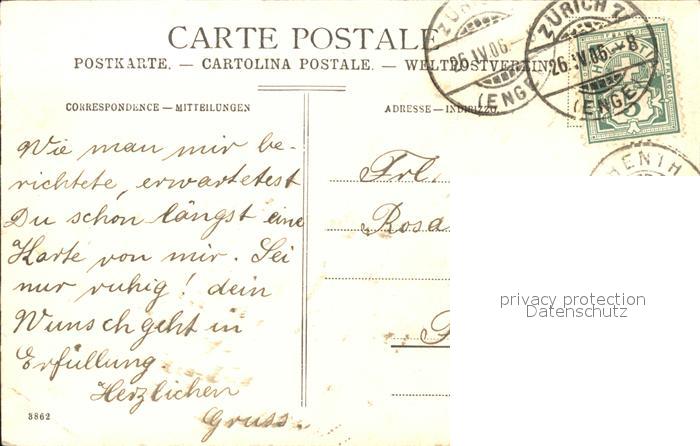 CARTE POSTALE
POSTKARTE. — CARTOLINA POSTALE. — WELTPOSTVEREIN
CORRESPONDENCE — MITTEILUNGEN
ADRESSE — INDIRIZZO.
ZÜRICH 7
26.IV.06.
(ENGE)
ZÜRICH 7
26.IV.06. — 8
(ENGE)
5
Wie man mir be-
richtete, erwartetest
Du schon längst eine
Karte von mir. Sei
nur ruhig! dein
Wunsch geht in
Erfüllung.
Herzlichen
Gruss.
Frl.
Rosa
privacy protection
Datenschutz
3862